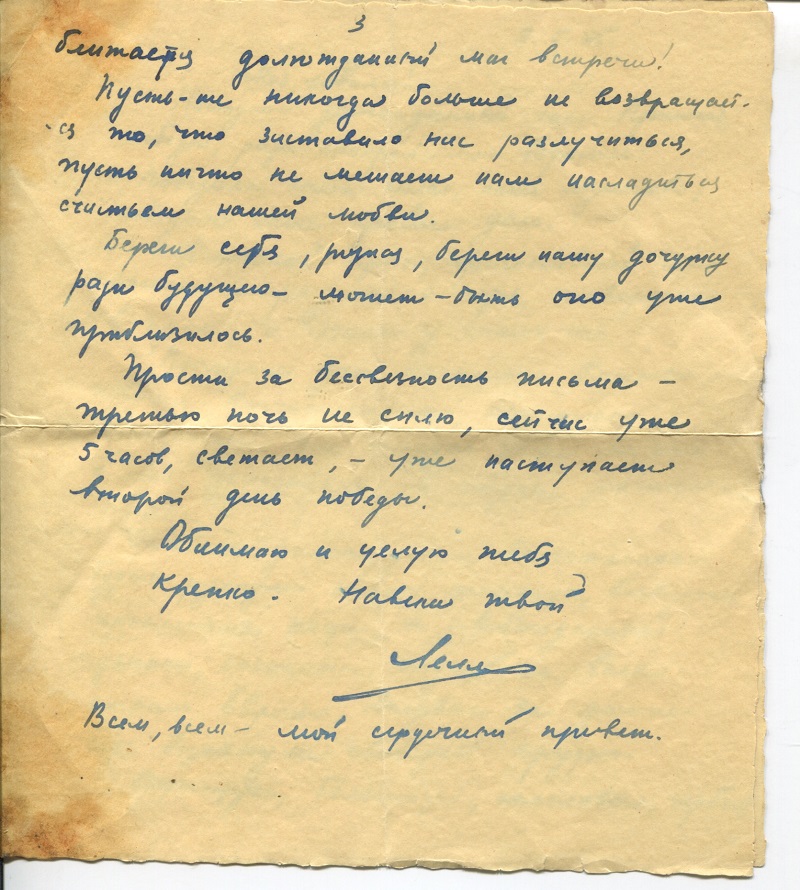 3
ближается долгожданный миг встречи!
Пусть-же никогда больше не возвращает-
-ся то, что заставило нас разлучиться,
пусть ничто не мешает нам насладиться
счастьем нашей любви.
Береги себя, родная, береги нашу дочурку
ради будущего - может-быть оно уже
приблизилось.
Прости за бессвязность письма -
третью ночь не сплю, сейчас уже
5 часов, светает, - уже наступает
второй день победы.
Обнимаю и целую тебя
крепко. Навеки твой
Всем, всем - мой сердечный привет.